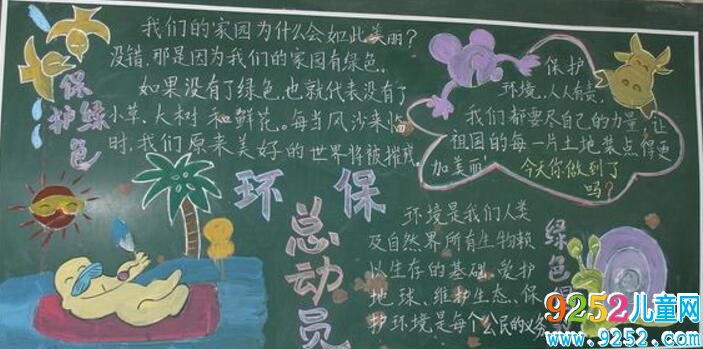 保护绿色
我们的家园为什么会如此美丽?
没错,那是因为我们的家园有绿色。
如果没有了绿色,也就代表没有了
小草、大树和鲜花。每当风沙来临
时,我们原来美好的世界将被摧残。
保护
环境,人人有责,
我们都要尽自己的力量,让
祖国的每一片土地装点得更
加美丽!
今天你做到了
吗?
环保
总动员
环境是我们人类
及自然界所有生物赖
以生存的基础、爱护
地球、维护生态、保
护环境是每个公民的义务
绿色
9252儿童网
www.9252.com